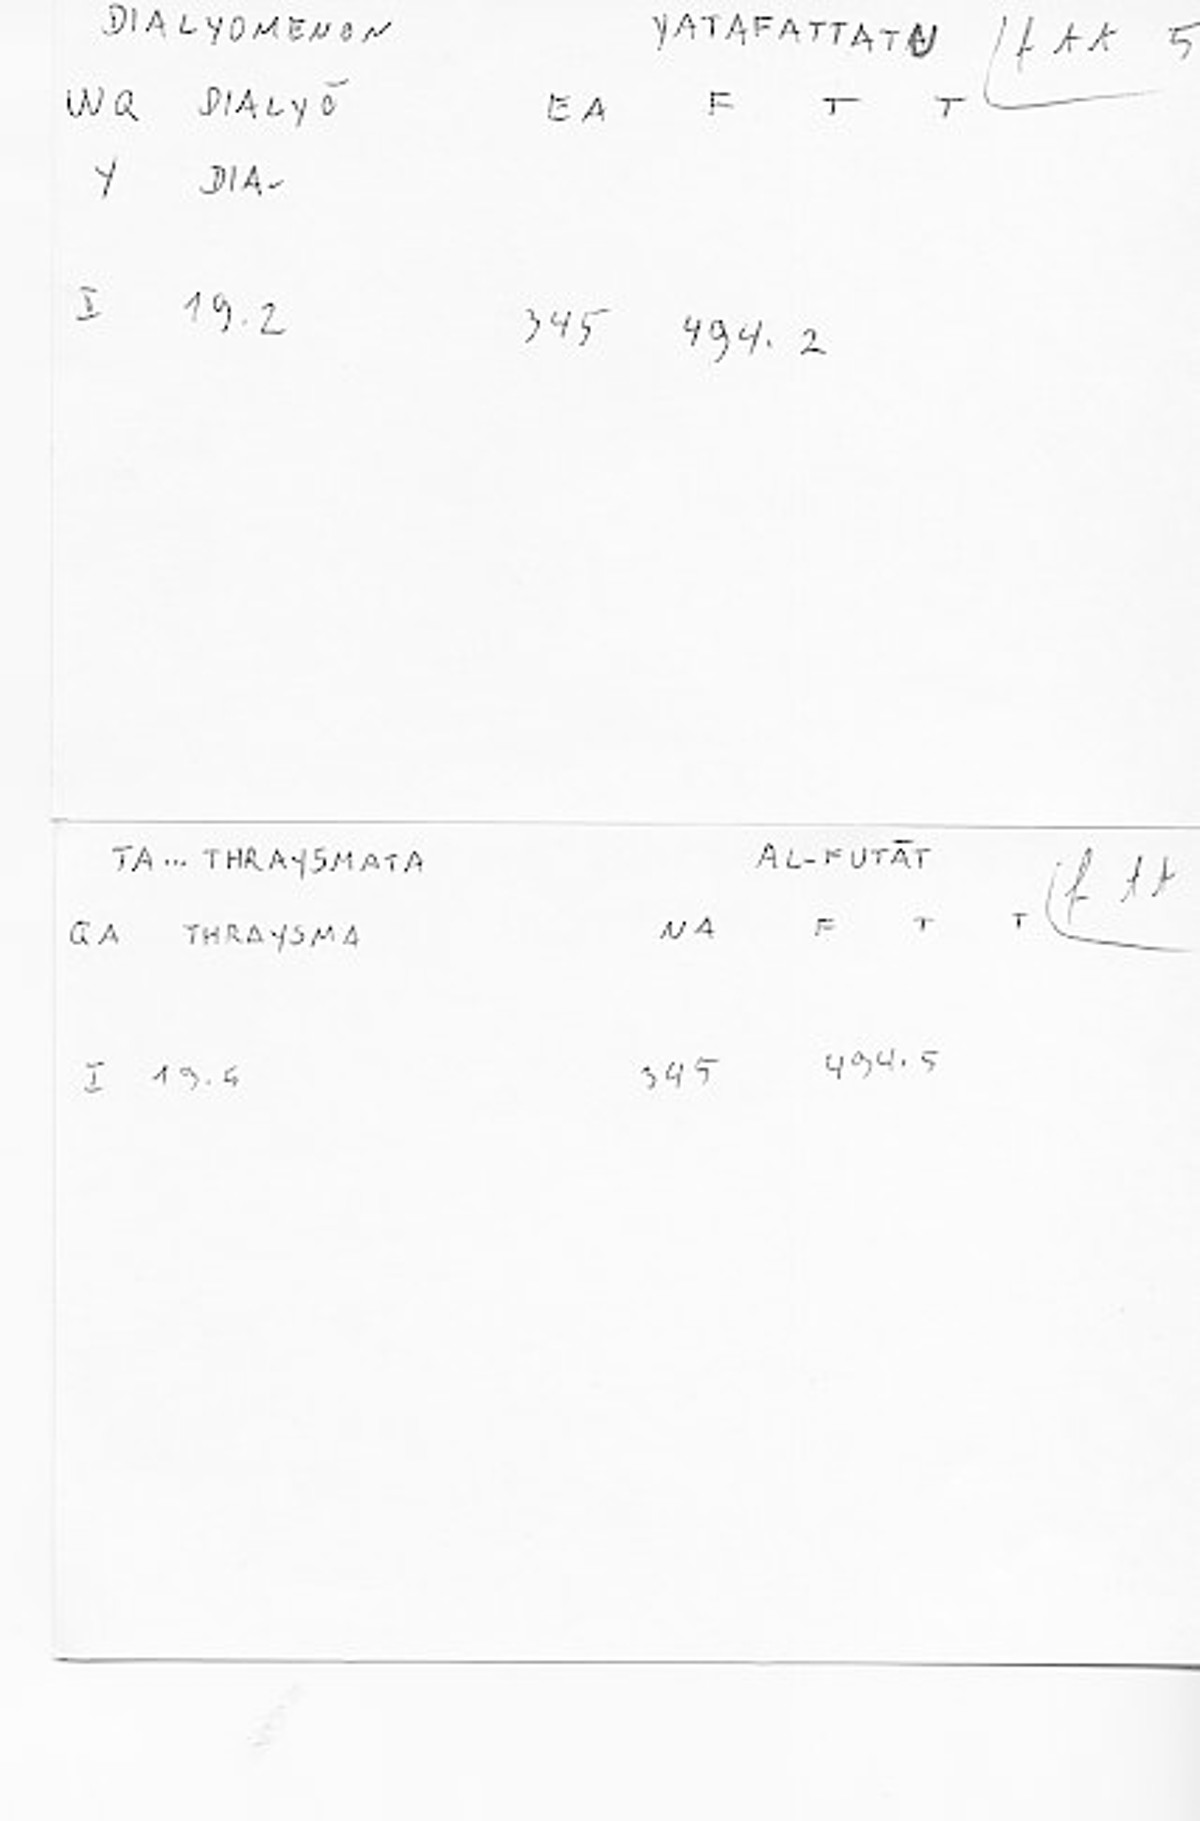 DIALYOMENON YATAFATTATU ftt 5
WQ DIALYŌ EA F T T
Y DIA-
I 19.2 345 494.2
TA... THRAYSMATA AL-FUTĀT ftt
QA THRAYSMA NA F T T
I 19.5 345 494.5